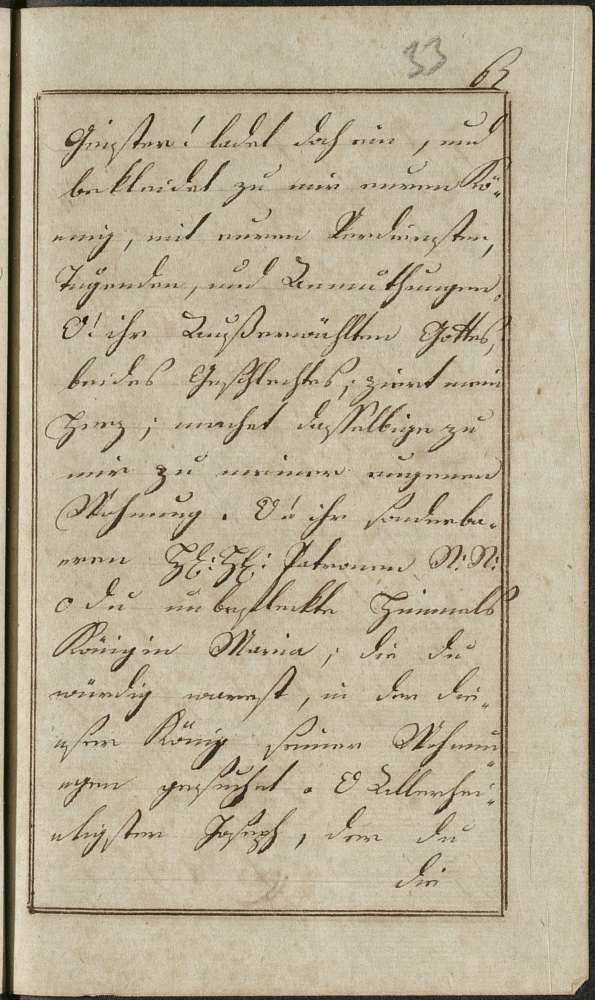 33
63
Geister! ladet doch ein, und
bekleidet zu mir euren Kö-
enig, mit euren Verdiensten,
Tugenden, und Anmuthungen,
O! ihr Außerwählten Gottes,
beides Geschlechtes; zieret mein
Herz; machet dasselbige zu
mir zu meiner eigenen
Wohnung. O! ihr sonderba-
eren HH: HH: Patronen N: N:
o du unbefleckte Himmels
Königin Maria, die du
würdig warest, in der die-
eser König seiner Wohnu-
ngen gesuchet. O Allerhei-
eligster Joseph, der du
die